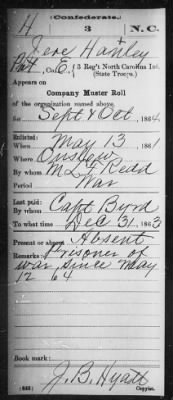 (Confederate.)
H 3 N.C.
Jere Hanley
Pvt, Co. E, 3 Reg't North Carolina Inf.
(State Troops.)
Appears on
Company Muster Roll
of the organization named above,
for Sept & Oct, 1864
Enlisted:
When May 13 1861
Where Onslow
By whom M. L. F. Redd
Period War
Last paid:
By whom Capt Byrd
To what time Dec 31, 1863
Present or absent Absent
Remarks: Prisoner of
war since May
12 64
Book mark:
(642) J. B. Hyatt
Copyist.